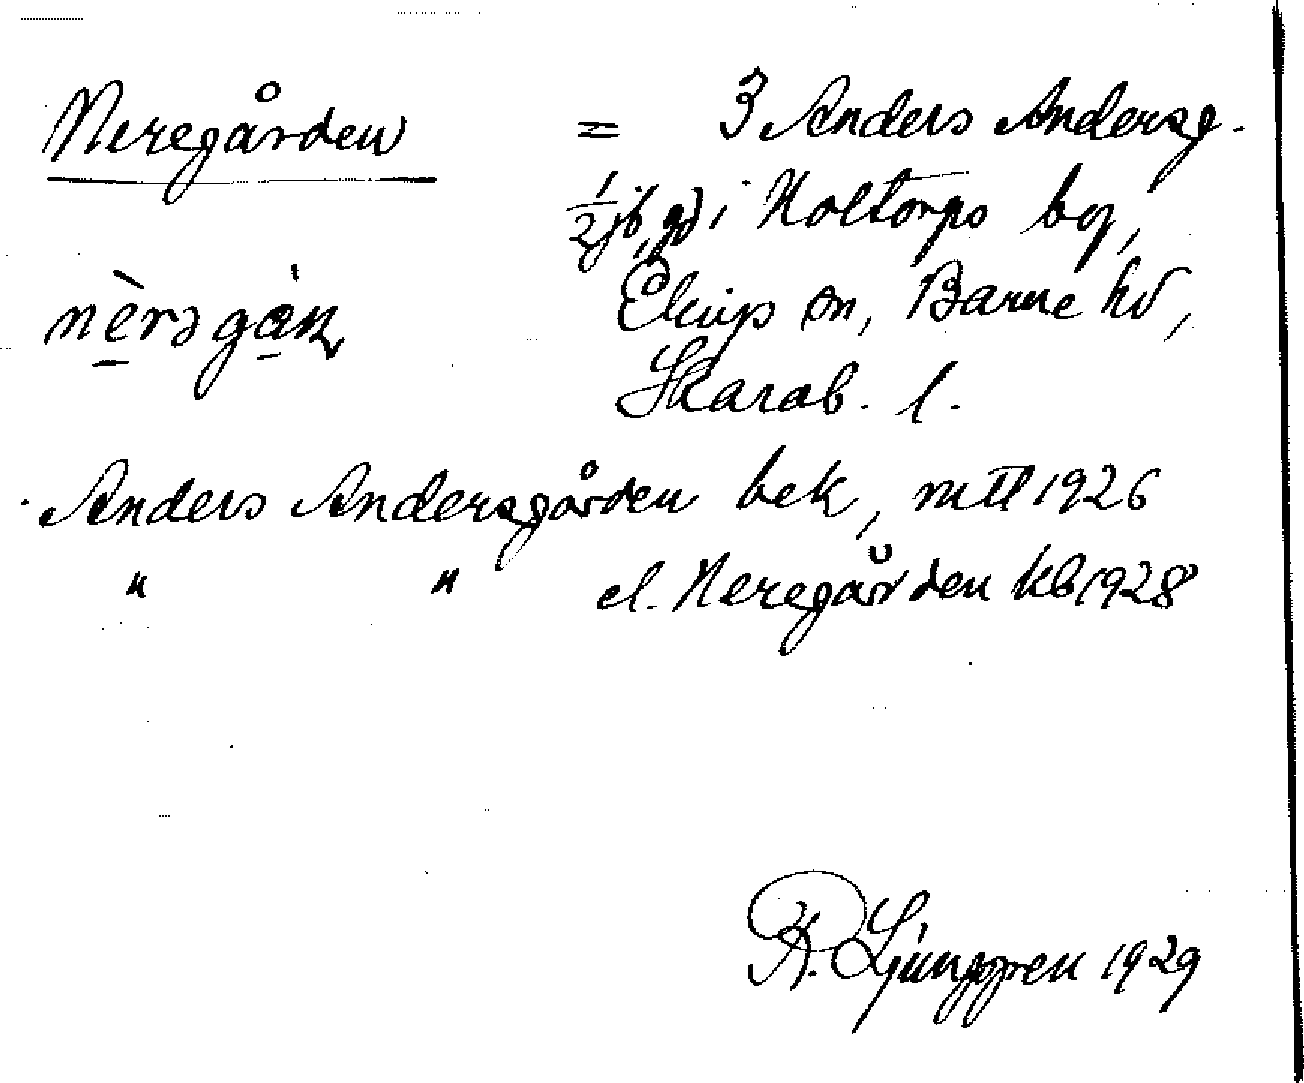 Neregården = 3 Anders Andersg.
1/2 jb, gd i Holtorps by,
nèrəgán Eling sn, Barne hd,
Skarab. l.
Anders Andersgården bek, mtl 1926
" " el. Neregården kb 1928
K. Ljunggren 1929